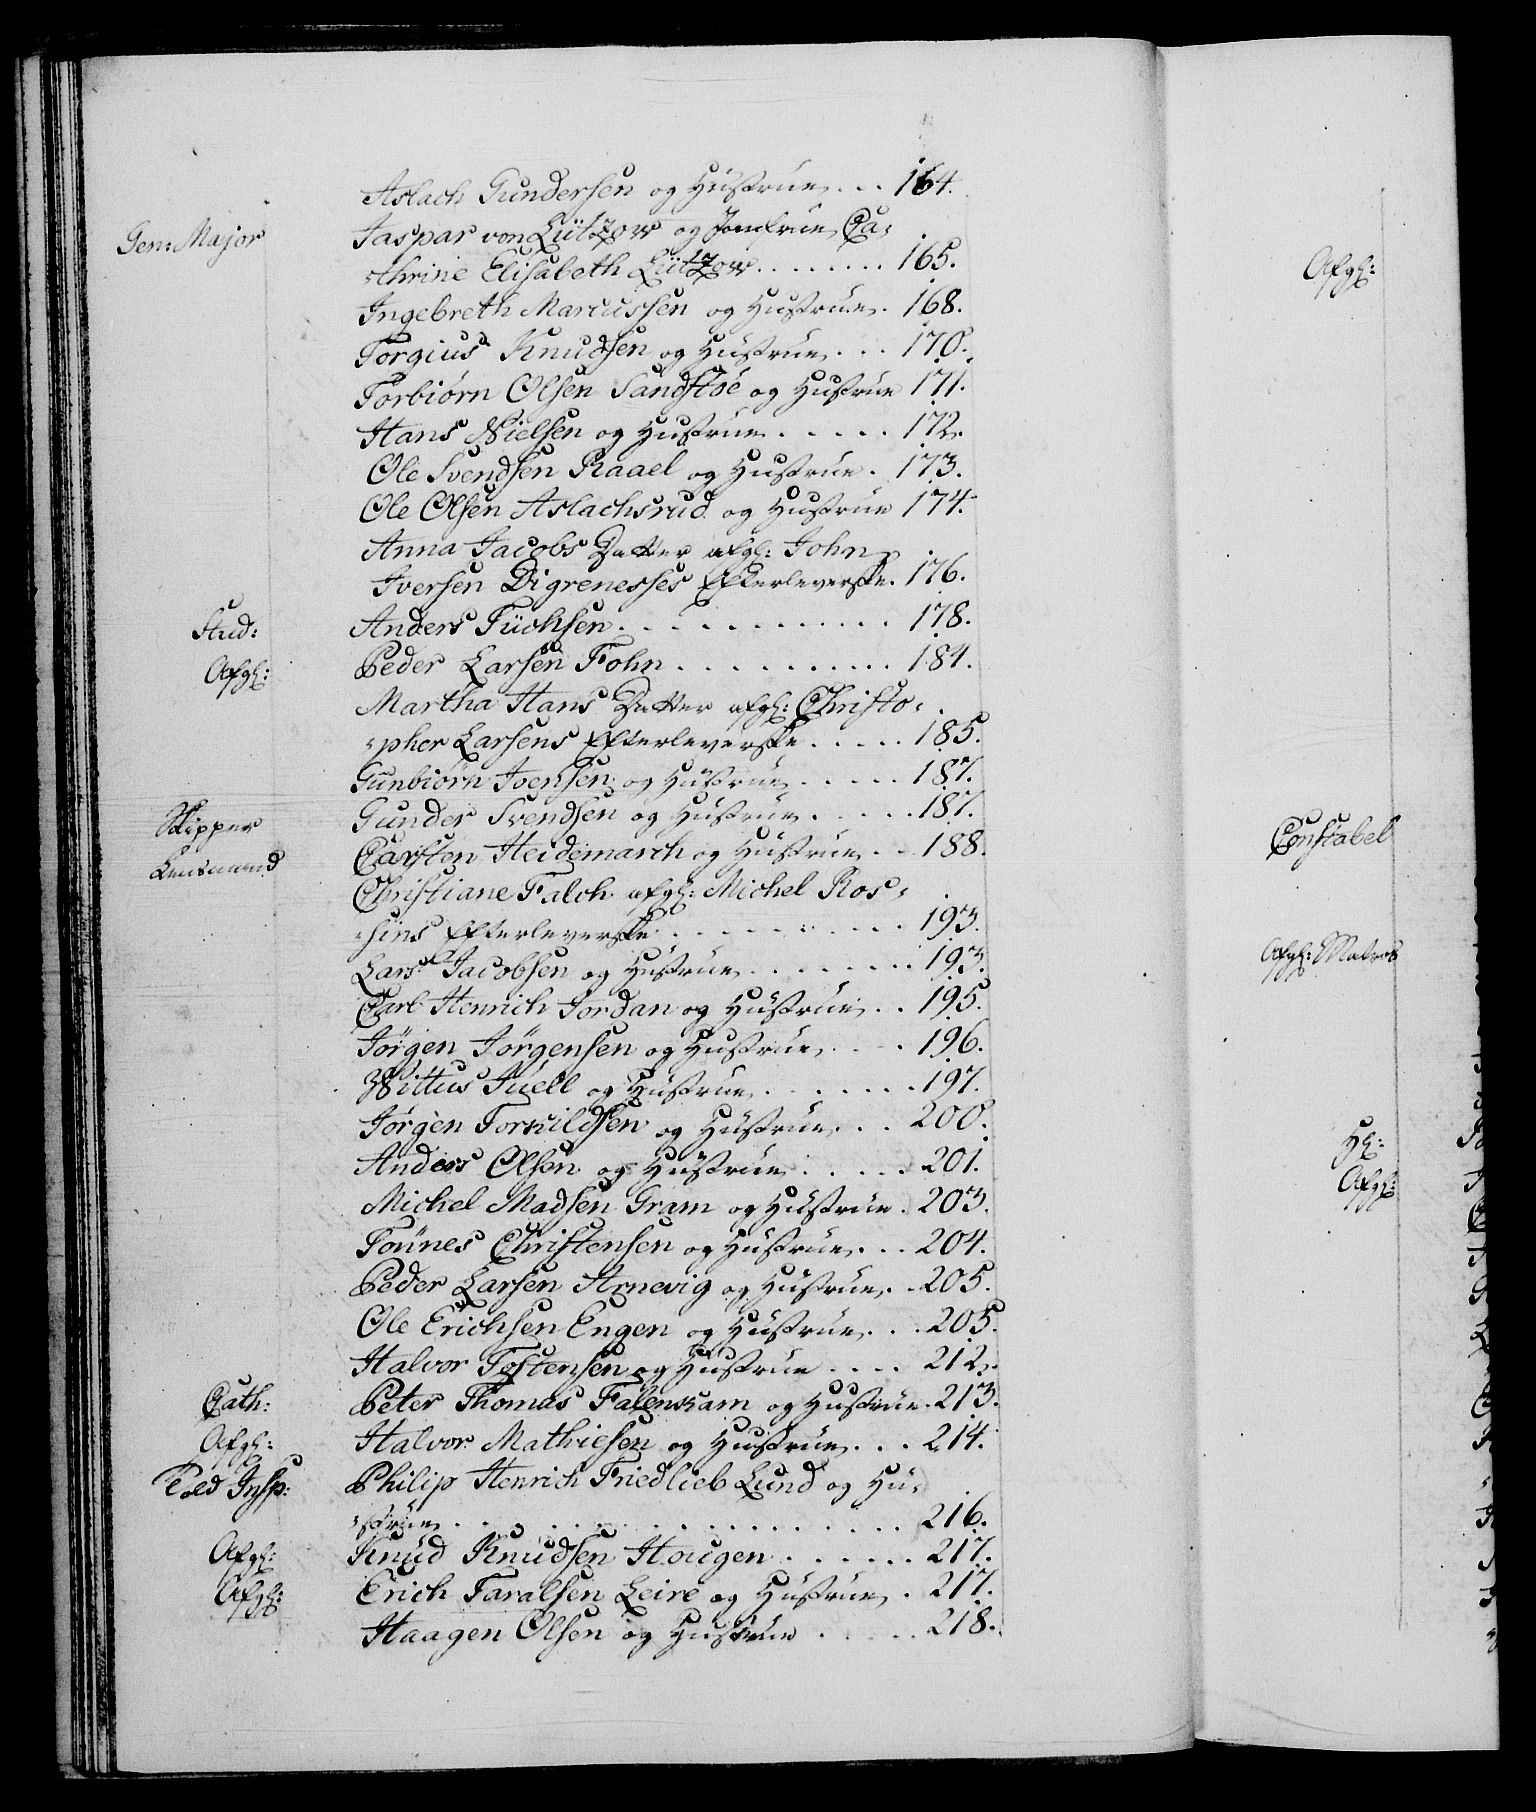 Aslach Gundersen og Hustrue . . . 164.
Gen: Major Jaspar von Lützow og Jomfrue Ca=
=thrine Elisabeth Lützow . . . . . . . . 165.
Ingebreth Marcussen og Hustrue . 168.
Torgius Knudsen og Hustrue . . . 170.
Torbiörn Olsen Sandstöe og Hustrue 171.
Hans Nielsen og Hustrue . . . . . 172.
Ole Svendsen Raael og Hustrue . 173.
Ole Olsen Aslachsrud og Hustrue 174.
Anna Jacobs Datter afgl: John
Iversen Digrenesses Efterleverske . 176.
Stud: Anders Tüchsen . . . . . . . . . . . . 178.
Afgl: Peder Larsen Fohn . . . . . . . . . . 184.
Martha Hans Datter afgl: Christo=
=pher Larsens Efterleverske . . . . . 185.
Gunbiörn Ivensen og Hustrue . . . . . 187.
Skipper Gunder Svendsen og Hustrue . . . . . 187.
Lensmand Carsten Heidemarch og Hustrue . . 188.
Christiane Falch afgl: Michel Ros=
=sins Efterleverske . . . . . . . . . . 193.
Lars Jacobsen og Hustrue . . . . . . . 193.
Carl Henrich Jordan og Hustrue . . 195.
Jörgen Jörgensen og Hustrue . . . 196.
Wittus Juell og Hustrue . . . . . . . 197.
Jörgen Torkildsen og Hustrue . . . 200.
Anders Olsen og Hustrue . . . . . 201.
Michel Madsen Gram og Hustrue . 203.
Tönnes Christensen og Hustrue . . . 204.
Peder Larsen Arnevig og Hustrue . . 205.
Ole Erichsen Engen og Hustrue . . . 205.
Halvor Tostensen og Hustrue . . . . 212.
Cath: Peter Thomas Falenkam og Hustrue . 213.
Afgl: Halvor Mathiesen og Hustrue . . . 214.
Told Insp: Philip Henrich Friedlieb Lund og Hu=
=strue . . . . . . . . . . . . . . . . . . 216.
Afgl: Knud Knudsen Hougen . . . . . . 217.
Afgl: Erich Taralsen Leire og Hustrue . 217.
Haagen Olsen og Hustrue . . . . . 218.
Afgl:
Constabel
Afgl: Matros
Hl:
Afgl: